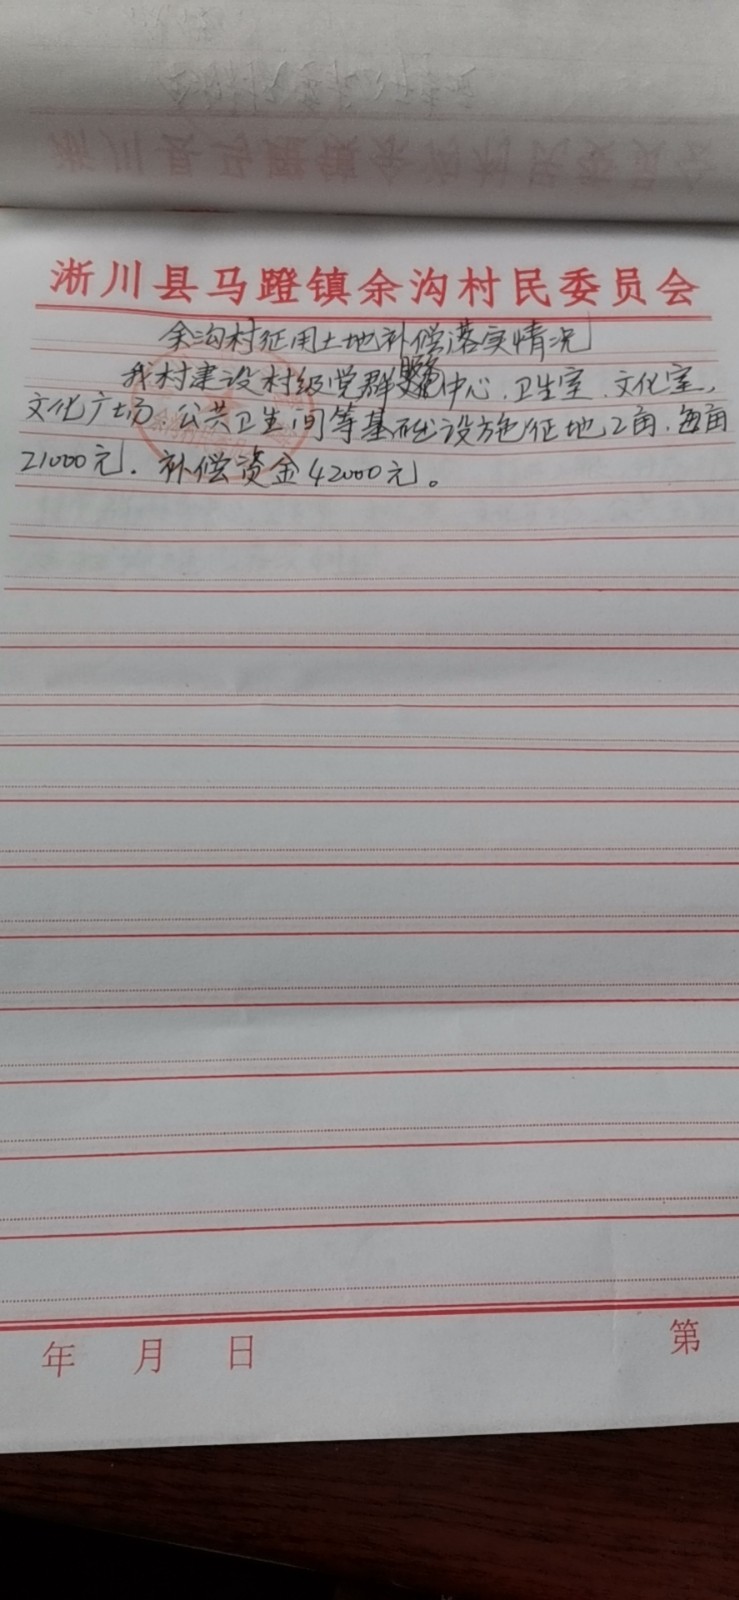 淅川县马蹬镇余沟村民委员会
余沟村征用土地补偿落实情况
我村建设村级党群服务中心、卫生室、文化室、
文化广场、公共卫生间等基础设施征地2亩,每亩
21000元,补偿资金42000元。
年 月 日
第